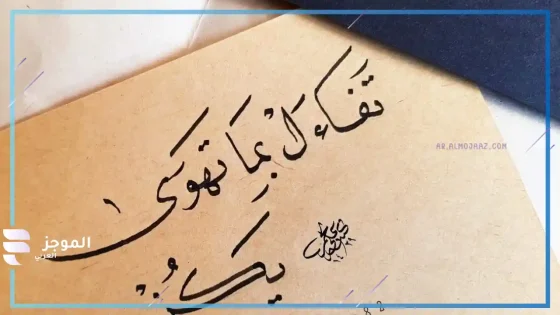 تفاءل بما تهوى
يكن
AR.ALMOJAAZ.COM
الموجز
العربي